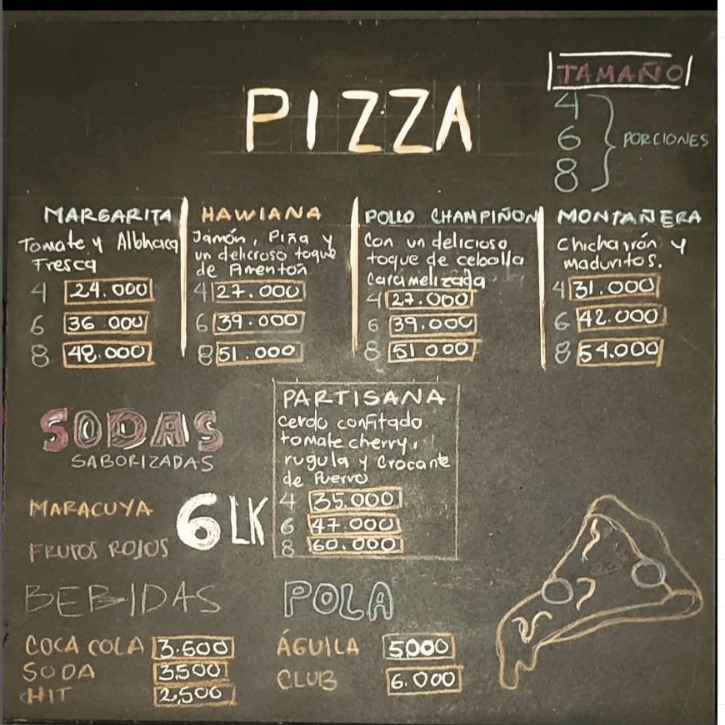 PIZZA
TAMAÑO
4
6
8
PORCIONES
MARGARITA
Tomate y Albhaca
Fresca
4 24.000
6 36 000
8 48.000
HAWIANA
Jamón, Piña y
un delicioso toque
de Pimenton
4 27.000
6 39.000
8 51.000
POLLO CHAMPIÑON
Con un delicioso
toque de cebolla
Caramelizada
4 27.000
6 39.000
8 51 000
MONTAÑERA
Chicharrón y
maduritos.
4 31.000
6 42.000
8 54.000
SODAS
SABORIZADAS
MARACUYA
FRUTOS ROJOS
6LK
PARTISANA
cerdo confitado
tomate cherry,
rugula y Crocante
de Puerro
4 35.000
6 47.000
8 60.000
BEBIDAS
COCA COLA 3.500
SODA 3500
HIT 2,500
POLA
ÁGUILA 5000
CLUB 6.000